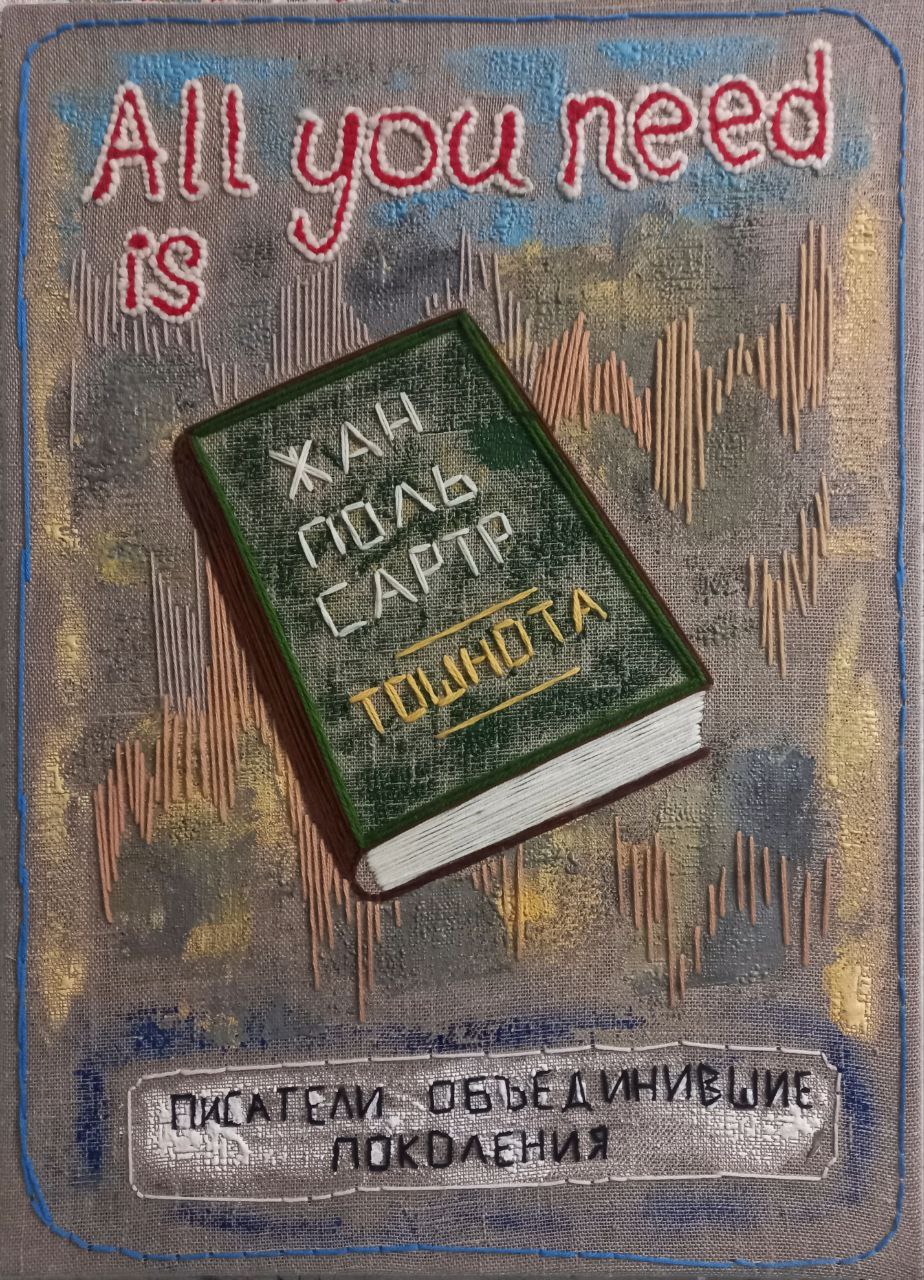 All you need
is
ЖАН
ПОЛЬ
САРТР
ТОШНОТА
ПИСАТЕЛИ ОБЪЕДИНИВШИЕ
ПОКОЛЕНИЯ